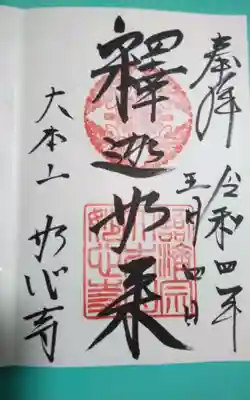 奉拝
令和四年
五月四日
釋迦如来
大本山 妙心寺